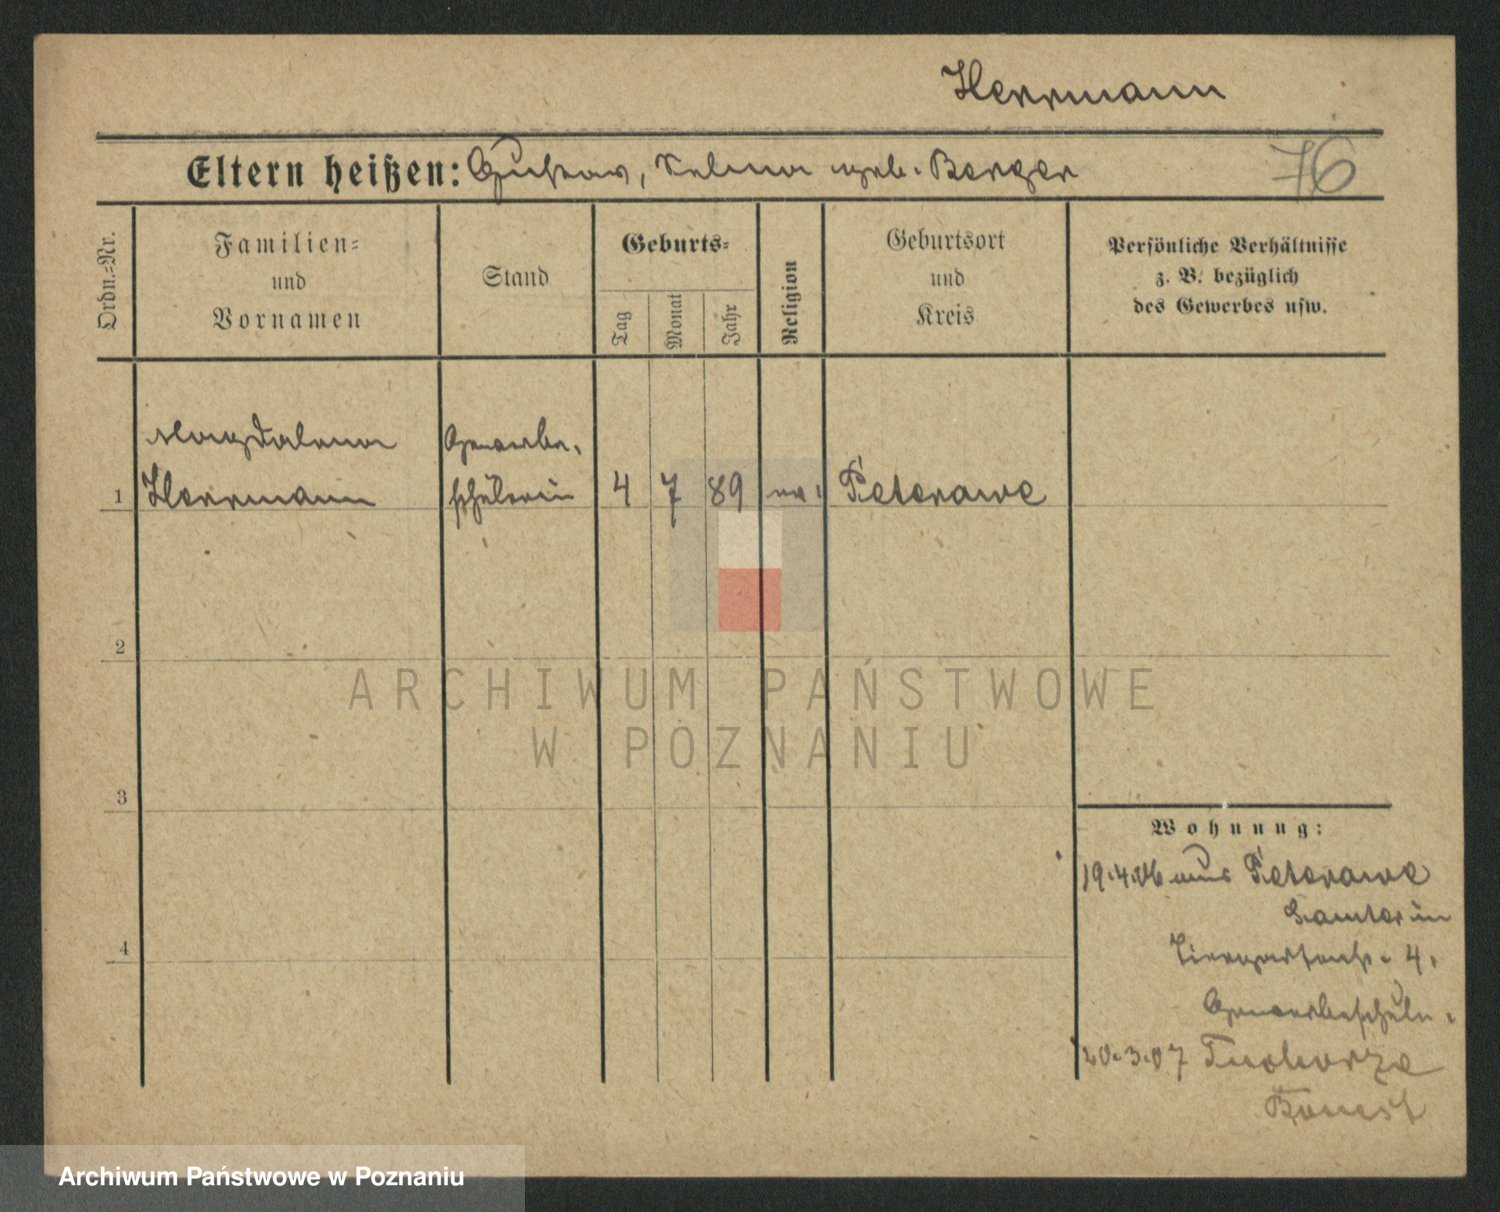 Herrmann
Eltern heißen: Gustav, Selma geb. Berger
76
Ordn.=Nr.
Familien=
und
Vornamen
Stand
Geburts=
Tag
Monat
Jahr
Religion
Geburtsort
und
Kreis
Persönliche Verhältnisse
z. B. bezüglich
des Gewerbes usw.
Magdalena Gewerbe-
1 Herrmann schülerin 4 7 89 ev. Peterawe
2
3
4
Wohnung:
19.4.06 aus Peterawe
Samter in
Tiergartenstr. 4.
Gewerbeschule.
20.3.07 Tuchorze
Bomst
ARCHIWUM PAŃSTWOWE
W POZNANIU
Archiwum Państwowe w Poznaniu